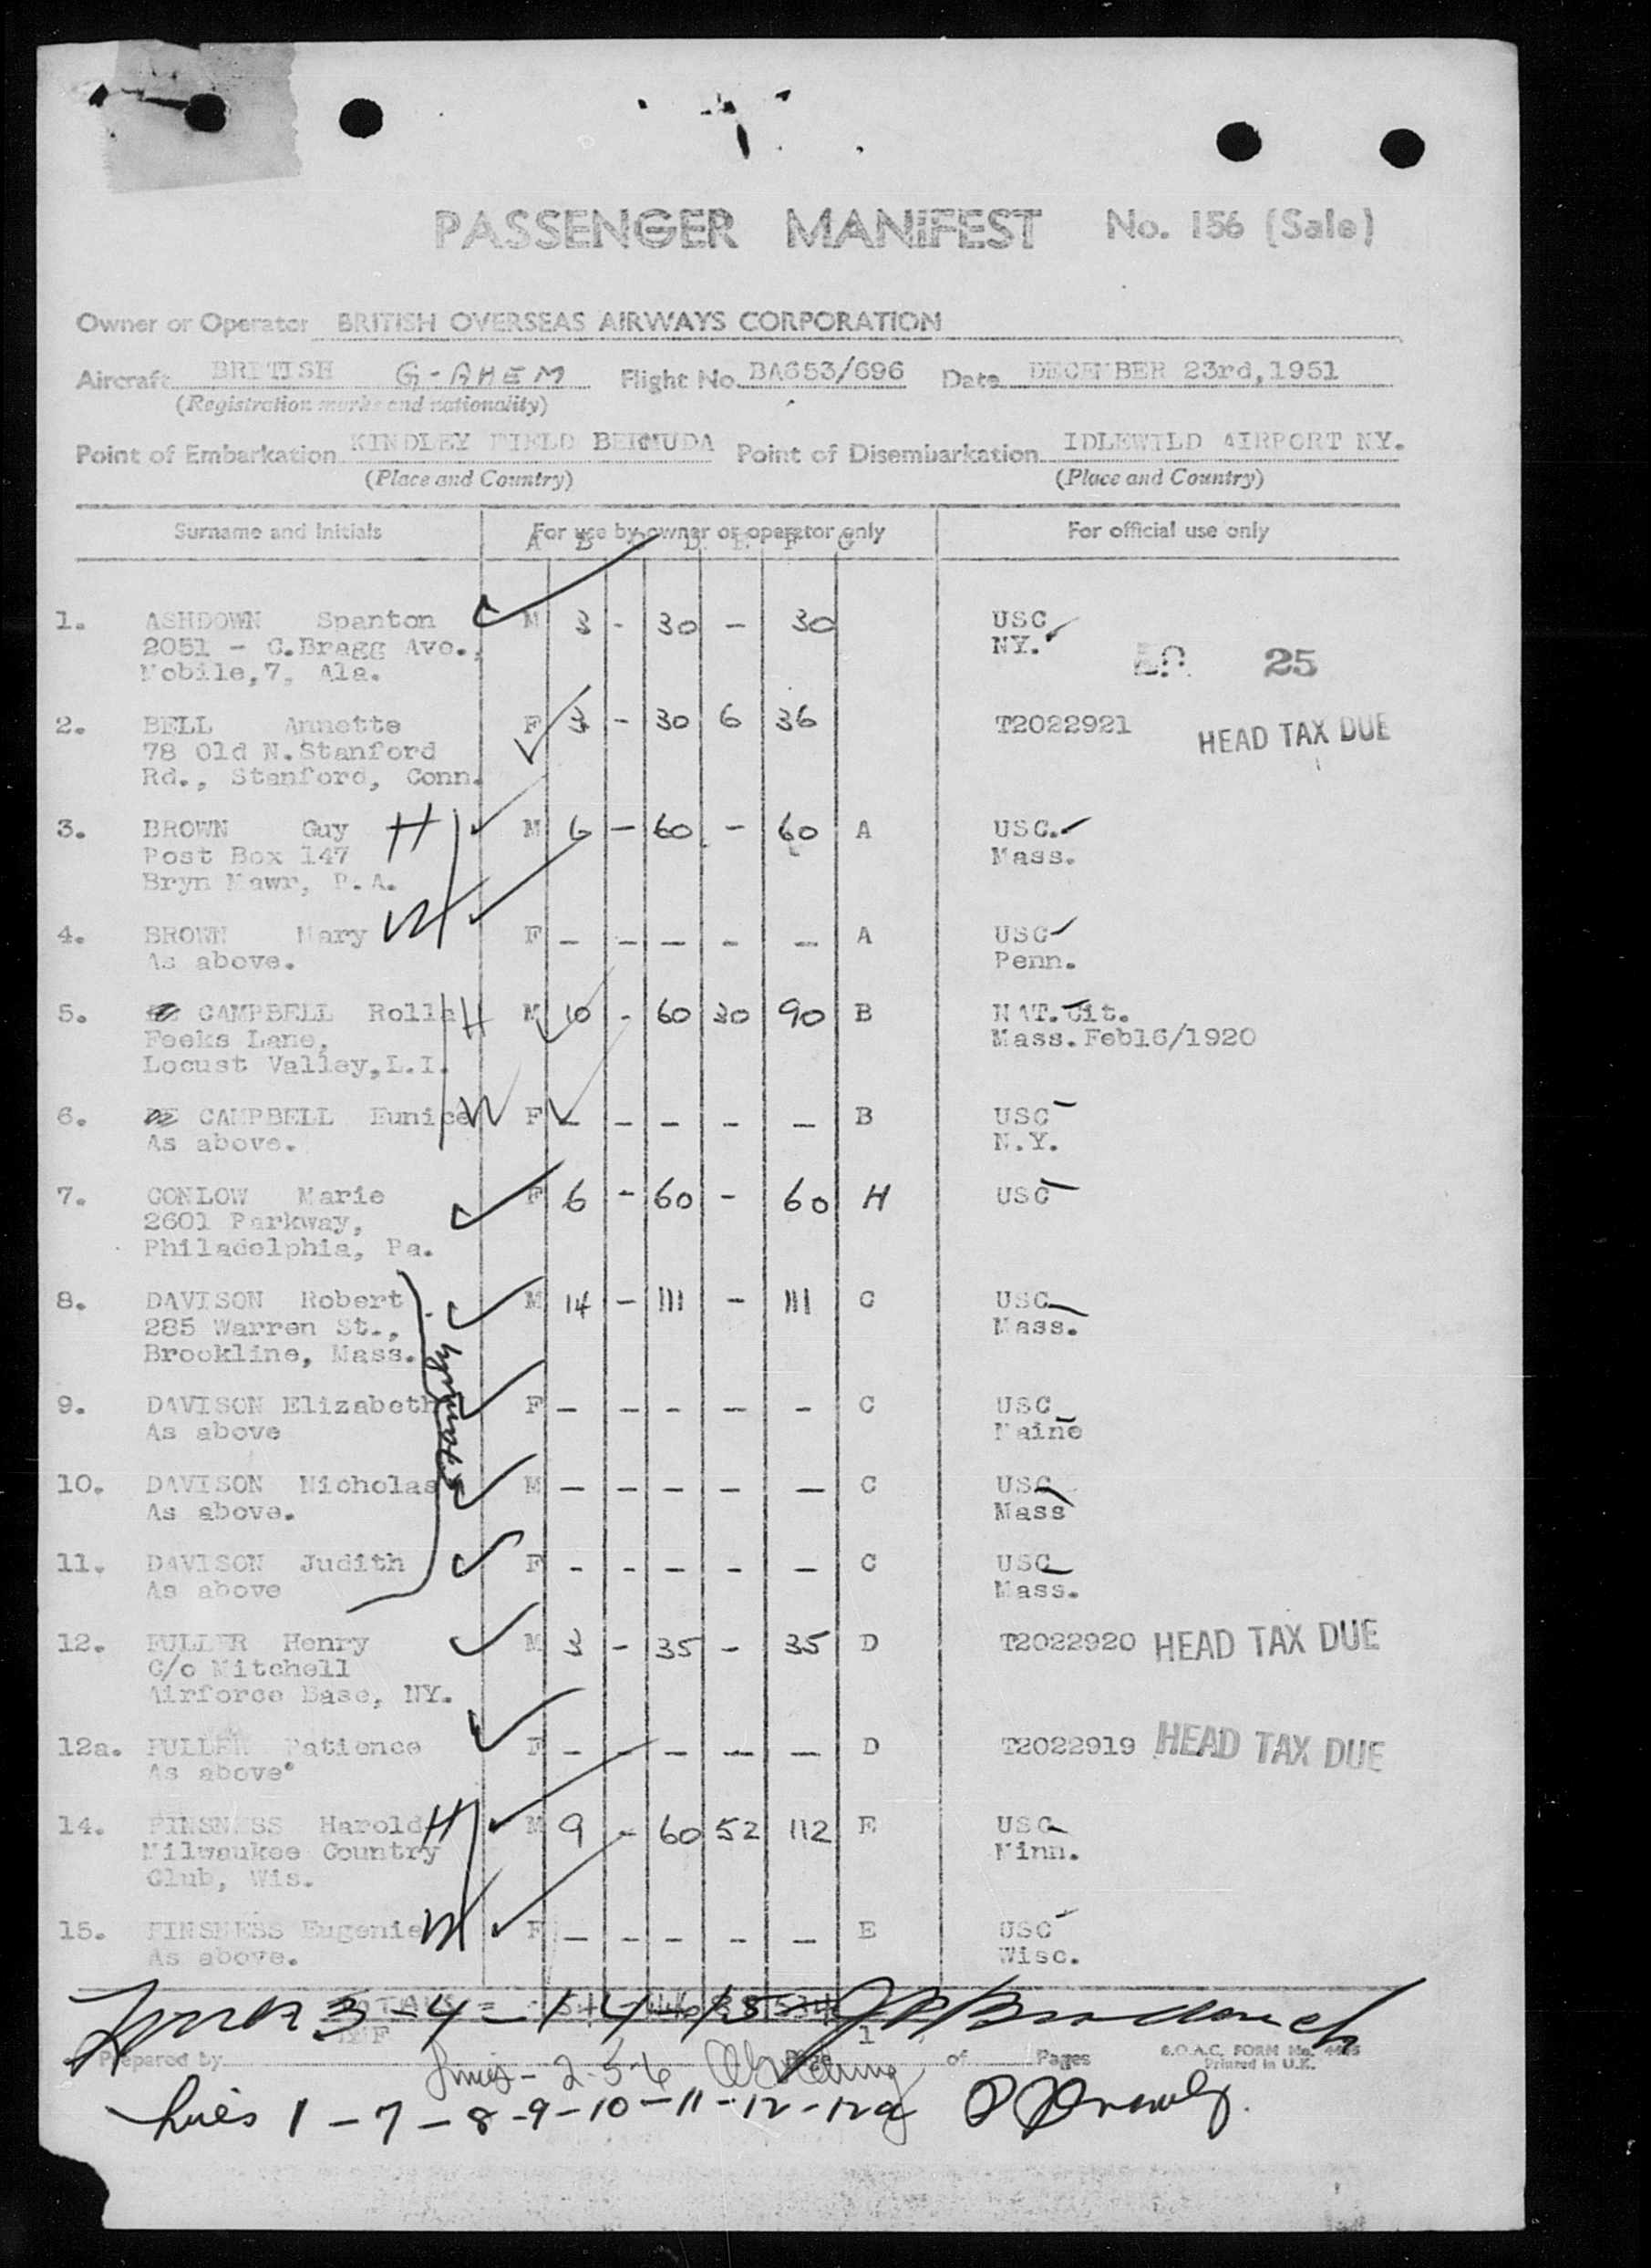 PASSENGER MANIFEST No. 156 (Sale)
Owner or Operator BRITISH OVERSEAS AIRWAYS CORPORATION
Aircraft BRITISH G-AHEM Flight No. BA653/696 Date DECEMBER 23rd, 1951
(Registration marks and nationality)
Point of Embarkation KINDLEY FIELD BERMUDA Point of Disembarkation IDLEWILD AIRPORT NY.
(Place and Country) (Place and Country)
Surname and Initials For use by owner or operator only For official use only
A B C D. E. F G
1. ASHDOWN Spanton M 3 - 30 - 30 USC
2051 - C.Bragg Ave., NY.
Mobile,7, Ala. 25
2. BELL Annette F 3 - 30 6 36 T2022921 HEAD TAX DUE
78 Old N.Stanford
Rd., Stanford, Conn.
3. BROWN Guy H M 6 - 60 - 60 A USC.
Post Box 147 Mass.
Bryn Mawr, P.A.
4. BROWN Mary W F - - - - - A USC
As above. Penn.
5. CAMPBELL Rolla H M 10 - 60 30 90 B NAT.Cit.
Feeks Lane, Mass.Feb16/1920
Locust Valley,L.I.
6. CAMPBELL Eunice W F - - - - - B USC
As above. N.Y.
7. CONLOW Marie F 6 - 60 - 60 H USC
2601 Parkway,
Philadelphia, Pa.
8. DAVISON Robert M 14 - 111 - 111 C USC
285 Warren St., Mass.
Brookline, Mass.
9. DAVISON Elizabeth F - - - - - C USC
As above Maine
10. DAVISON Nicholas M - - - - - C USC
As above. Mass
11. DAVISON Judith F - - - - - C USC
As above Mass.
12. FULLER Henry M 3 - 35 - 35 D T2022920 HEAD TAX DUE
C/o Mitchell
Airforce Base, NY.
12a. FULLER Patience F - - - - - D T2022919 HEAD TAX DUE
As above.
14. FINSNESS Harold H M 9 - 60 52 112 E USC
Milwaukee Country Minn.
Club, Wis.
15. FINSNESS Eugenie W F - - - - - E USC
As above. Wisc.
3-4-14-15
Prepared by Page 1 of Pages B.O.A.C. FORM No.
Printed in U.K.
Lines - 2-5-6
Lines 1-7-8-9-10-11-12-12a